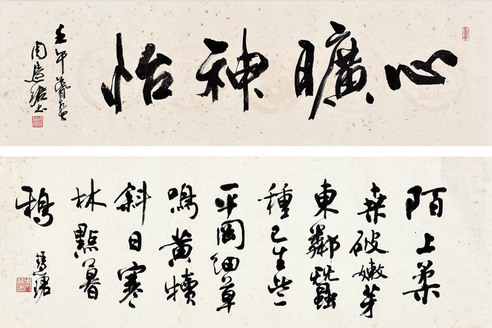 心曠神怡
壬午暮春
周慧珺
陌上柔
桑破嫩芽
東鄰蠶
種已生些
平岡細草
鳴黄犢
斜日寒
林點暮
鴉
慧珺